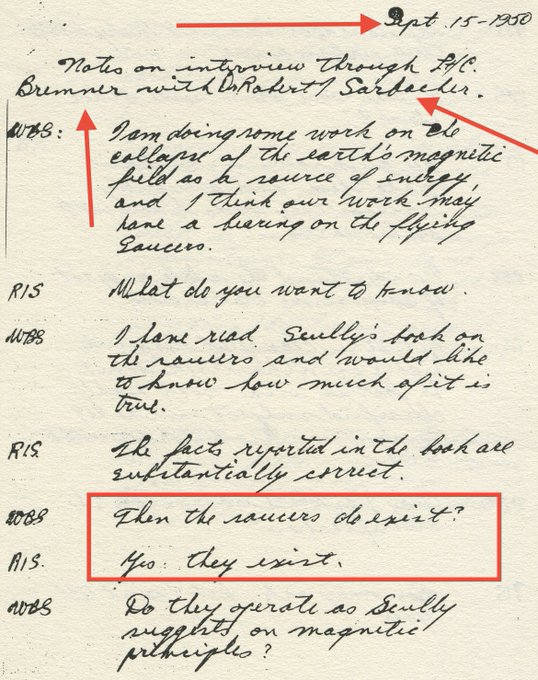 Sept. 15 - 1950
Notes on interview through Lt/C.
Bremner with Dr Robert I Sarbacher.
WBS: I am doing some work on the
collapse of the earth's magnetic
field as a source of energy,
and I think our work may
have a bearing on the flying
saucers.
RIS What do you want to know.
WBS I have read Scully's book on
the saucers and would like
to know how much of it is
true.
RIS. The facts reported in the book are
substantially correct.
WBS Then the saucers do exist?
RIS. Yes: they exist.
WBS Do they operate as Scully
suggests, on magnetic
principles?